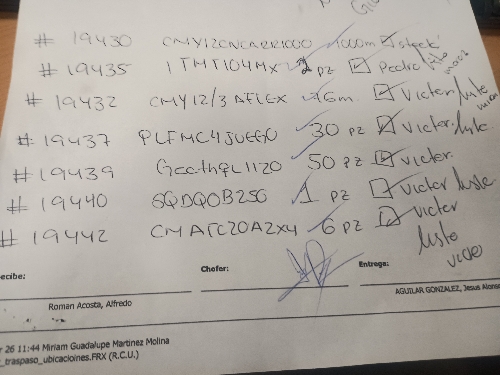 # 19430 CMY12CNCARR1000 1000m stock
# 19435 1TMT104MX 2 pz Pedro liste
# 19432 CMY12/3 AFLEX 6m Victer liste
# 19437 PLFMC4JUEGO 30 pz Victer liste
# 19439 50 pz Victer
# 19440 SQDQOB250 1 pz Victer liste
# 19442 CMATC20A2X4 6 pz Victer
liste
ecibe: Chofer: Entrega:
Roman Acosta, Alfredo AGUILAR GONZALEZ, Jesus Alonso
r 26 11:44 Miriam Guadalupe Martinez Molina
_traspaso_ubicacioines.FRX (R.C.U.)